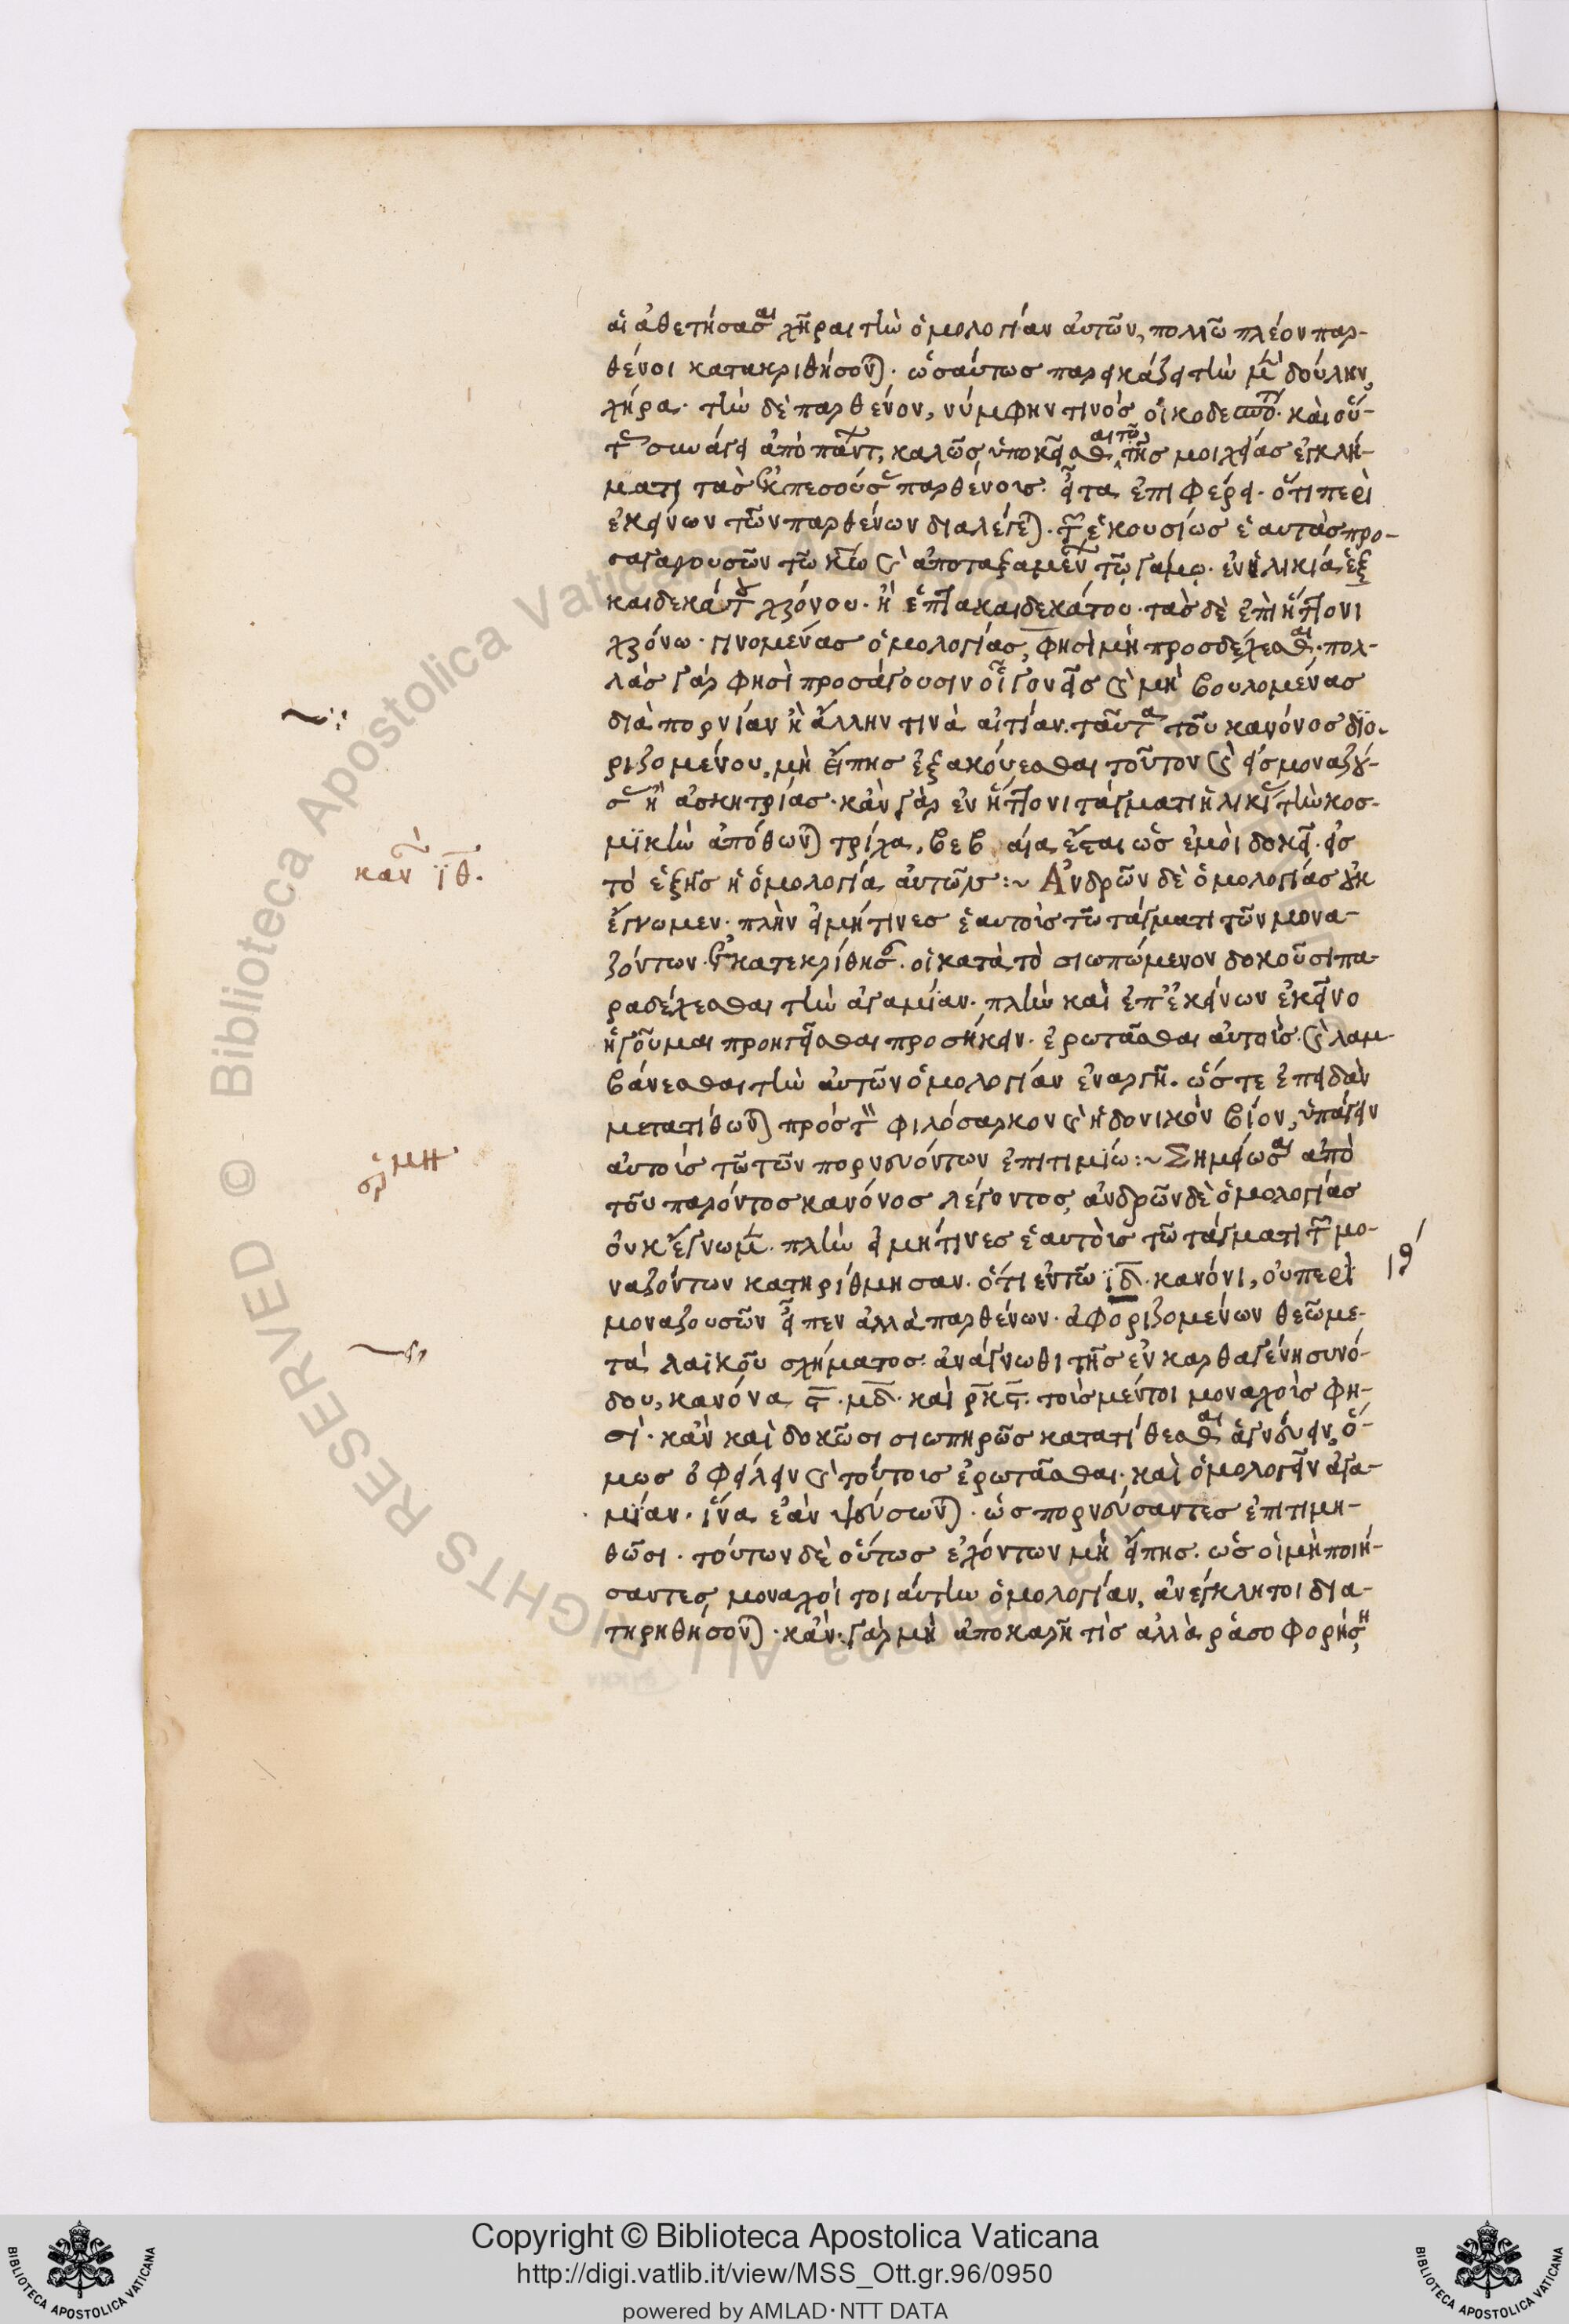 αἱ ἀθετήσασαι χῆραι τὴν ὁμολογίαν αὐτῶν, πολλῶ πλέον παρ-
θένοι κατακριθήσον). ὡσαύτως παρεικάζει τὴν μ(ὲν) δούλην,
χήρα· τὴν δὲ παρθένον, νύμφην τινὸς οἰκοδεσπότ. καὶ οὕ-
τ συνάγει ἀπὸ πάντ, καλῶς ὑποκεῖσθαι τῶ τῆς μοιχείας ἐγκλή-
ματι τὰς ἐκπεσούσ παρθένους. εἶτα ἐπιφέρει. ὅτι περὶ
ἐκείνων τῶν παρθένων διαλέγε). τ ἑκουσίως ἑαυτὰς προ-
σαγαγουσῶν τῶ κω καὶ ἀποταξαμέν τῶ γάμω. ἐν ἡλικία ἑξ
καιδεκάτου χρόνου. ἢ ἑπτακαιδεκάτου. τὰς δὲ ἐπὶ ἥττονι
χρόνω. γινομένας ὁμολογίας, φησὶ μὴ προσδέχεσθαι. πολ-
λὰς γάρ φησὶ προσάγουσιν οἱ γονεῖς καὶ μὴ βουλομένας
διὰ πορνίαν ἢ ἄλλην τινὰ αἰτίαν. ταῦτα τοῦ κανόνος διο-
ριζομένου, μὴ εἴπης ἐξακούεσθαι τοῦτον καὶ εἰς μοναζού-
σ ἢ ἀσκητρίας. κἂν γὰρ ἐν ἥττονι τάγματι ἡλικί τὴν κοσ-
μϊκὴν ἀπόθων) τρίχα, βεβαία ἔσται ὡς ἐμοὶ δοκεῖ. εἰς
τὸ ἑξῆς ἡ ὁμολογία αὐτῶν :~ Ἀνδρῶν δὲ ὁμολογίας οὐκ
ἔγνωμεν. πλὴν εἰ μήτινες ἑαυτοὺς τῶ τάγματι τῶν μονα-
ζόντων κατεκρίθησ. οἳ κατὰ τὸ σιωπώμενον δοκοῦσι πα-
ραδέχεσθαι τὴν ἀγαμίαν. πλὴν καὶ ἐπ' ἐκείνων ἐκεῖνο
ἡγοῦμαι προηγεῖσθαι προσήκειν. ἐρωτᾶσθαι αὐτοὺς. καὶ λαμ-
βάνεσθαι τὴν αὐτῶν ὁμολογίαν ἐναργῆ. ὥστε ἐπειδὰν
μετατίθων) πρὸς τ φιλόσαρκον καὶ ἡδονικὸν βίον, ὑπάγειν
αὐτοὺς τῶ τῶν πορνευόντων ἐπιτιμίω :~ Σημείωσαι ἀπὸ
τοῦ παρόντος κανόνος λέγοντος, ἀνδρῶν δὲ ὁμολογίας
οὐκ ἔγνωμ. πλὴν εἰ μήτινες ἑαυτοὺς τῶ τάγματι τ μο-
ναζόντων κατηρίθμησαν. ὅτι ἐν τῶ ϊδ. κανόνι, οὐ περὶ
μοναζουσῶν εἶπεν ἀλλὰ παρθένων. ἀφοριζομένων θεῶ με-
τὰ λαϊκοῦ σχήματος. ἀνάγνωθι τῆς ἐν καρθαγένη συνό-
δου, κανόνα ϛ. μδ. καὶ ρκϛ. τοὺς μέντοι μοναχοὺς φη-
σὶ. κἂν καὶ δοκῶσι σιωπηρῶς κατατίθεσθαι ἁγνεύειν, ὅ-
μως ὀφείλειν καὶ τούτους ἐρωτᾶσθαι. καὶ ὁμολογεῖν ἀγα-
μίαν. ἵνα ἐὰν ψεύσων). ὡς πορνεύσαντες ἐπιτιμη-
θῶσι. τούτων δὲ οὕτως ἐχόντων μὴ εἴπης. ὡς οἱ μὴ ποιή-
σαντες μοναχοὶ τοιαύτην ὁμολογίαν, ἀνέγκλητοι δια-
τηρηθήσον). κἂν γὰρ μὴ ἀποκαρῆ τὶς ἀλλὰ ρασοφορήση
καν ϊθ.
μη
ιθ
Copyright © Biblioteca Apostolica Vaticana
http://digi.vatlib.it/view/MSS_Ott.gr.96/0950
powered by AMLAD·NTT DATA
BIBLIOTECA APOSTOLICA VATICANA
BIBLIOTECA APOSTOLICA VATICANA